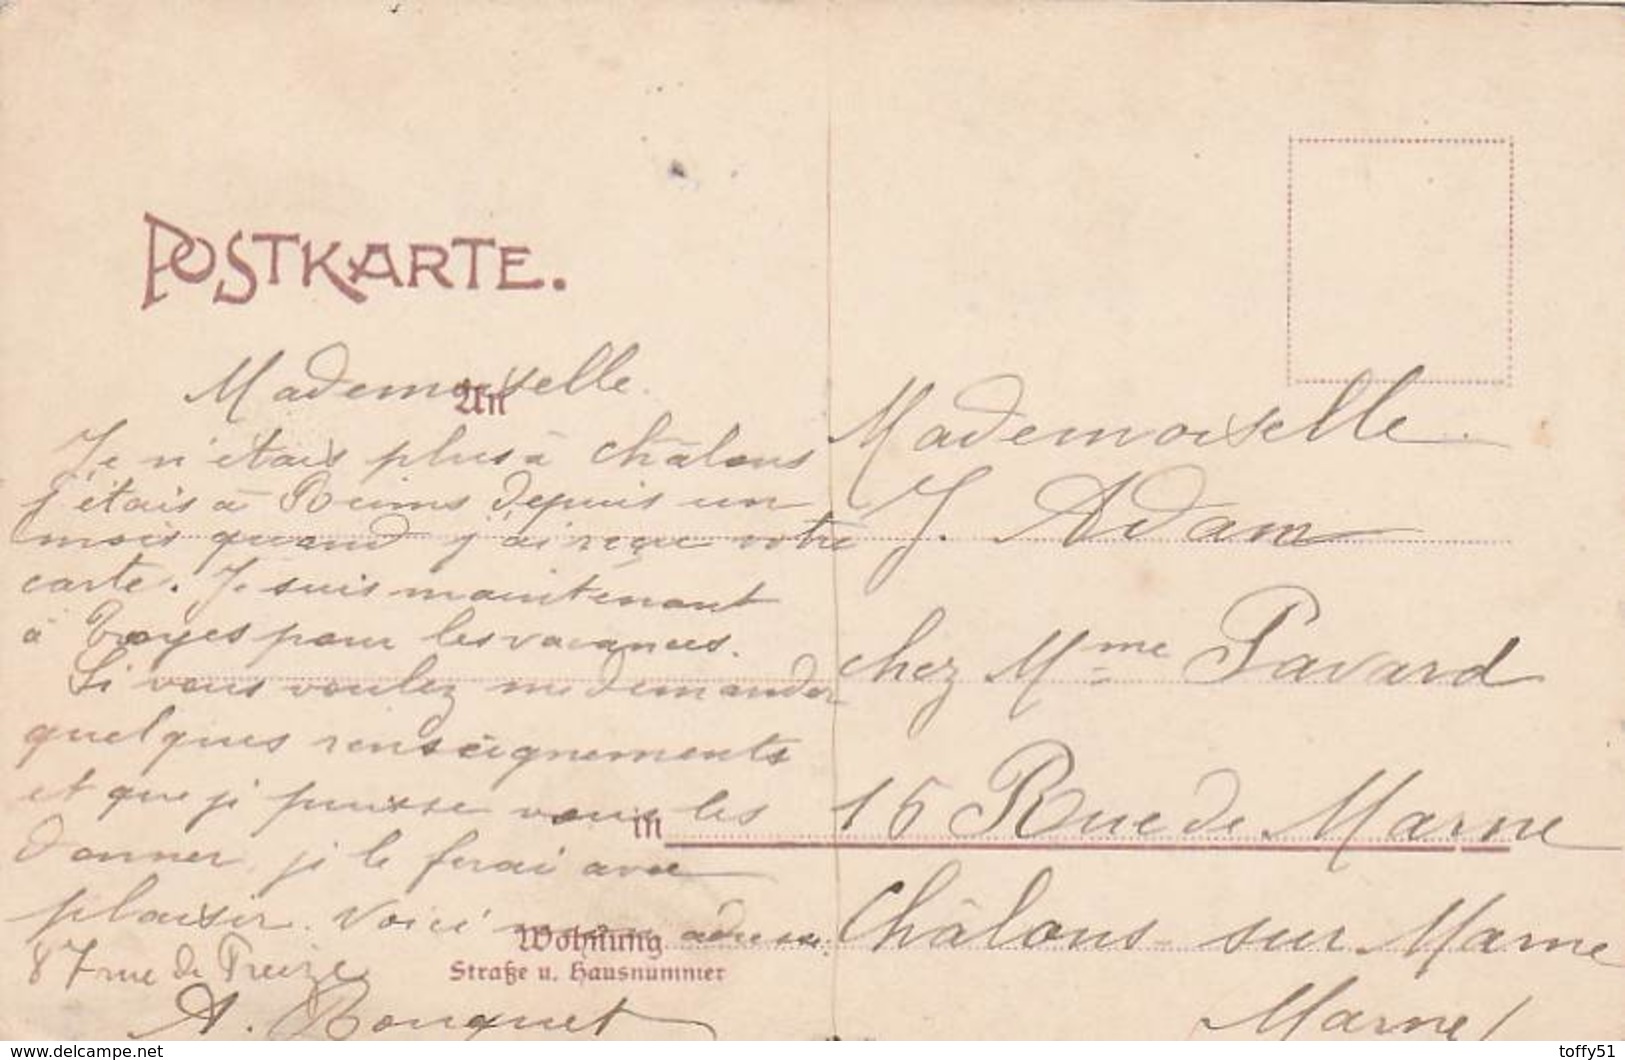 POSTKARTE.
An
Mademoiselle.
Je n'étais plus à Châlons
j'étais à Reims depuis un
mois quand j'ai reçu votre
carte. Je suis maintenant
à Troyes pour les vacances.
Si vous voulez me demander
quelques renseignements
et que je puisse vous les
donner, je le ferai avec
plaisir. Voici adresse.
87 rue de Preize
A. Bouquet
Mademoiselle.
J. Adam
chez Mme Pavard
in
15 Rue de Marne
Châlons sur Marne
Marne
Wohnung
Straße u. Hausnummer
delcampe.net
toffy51